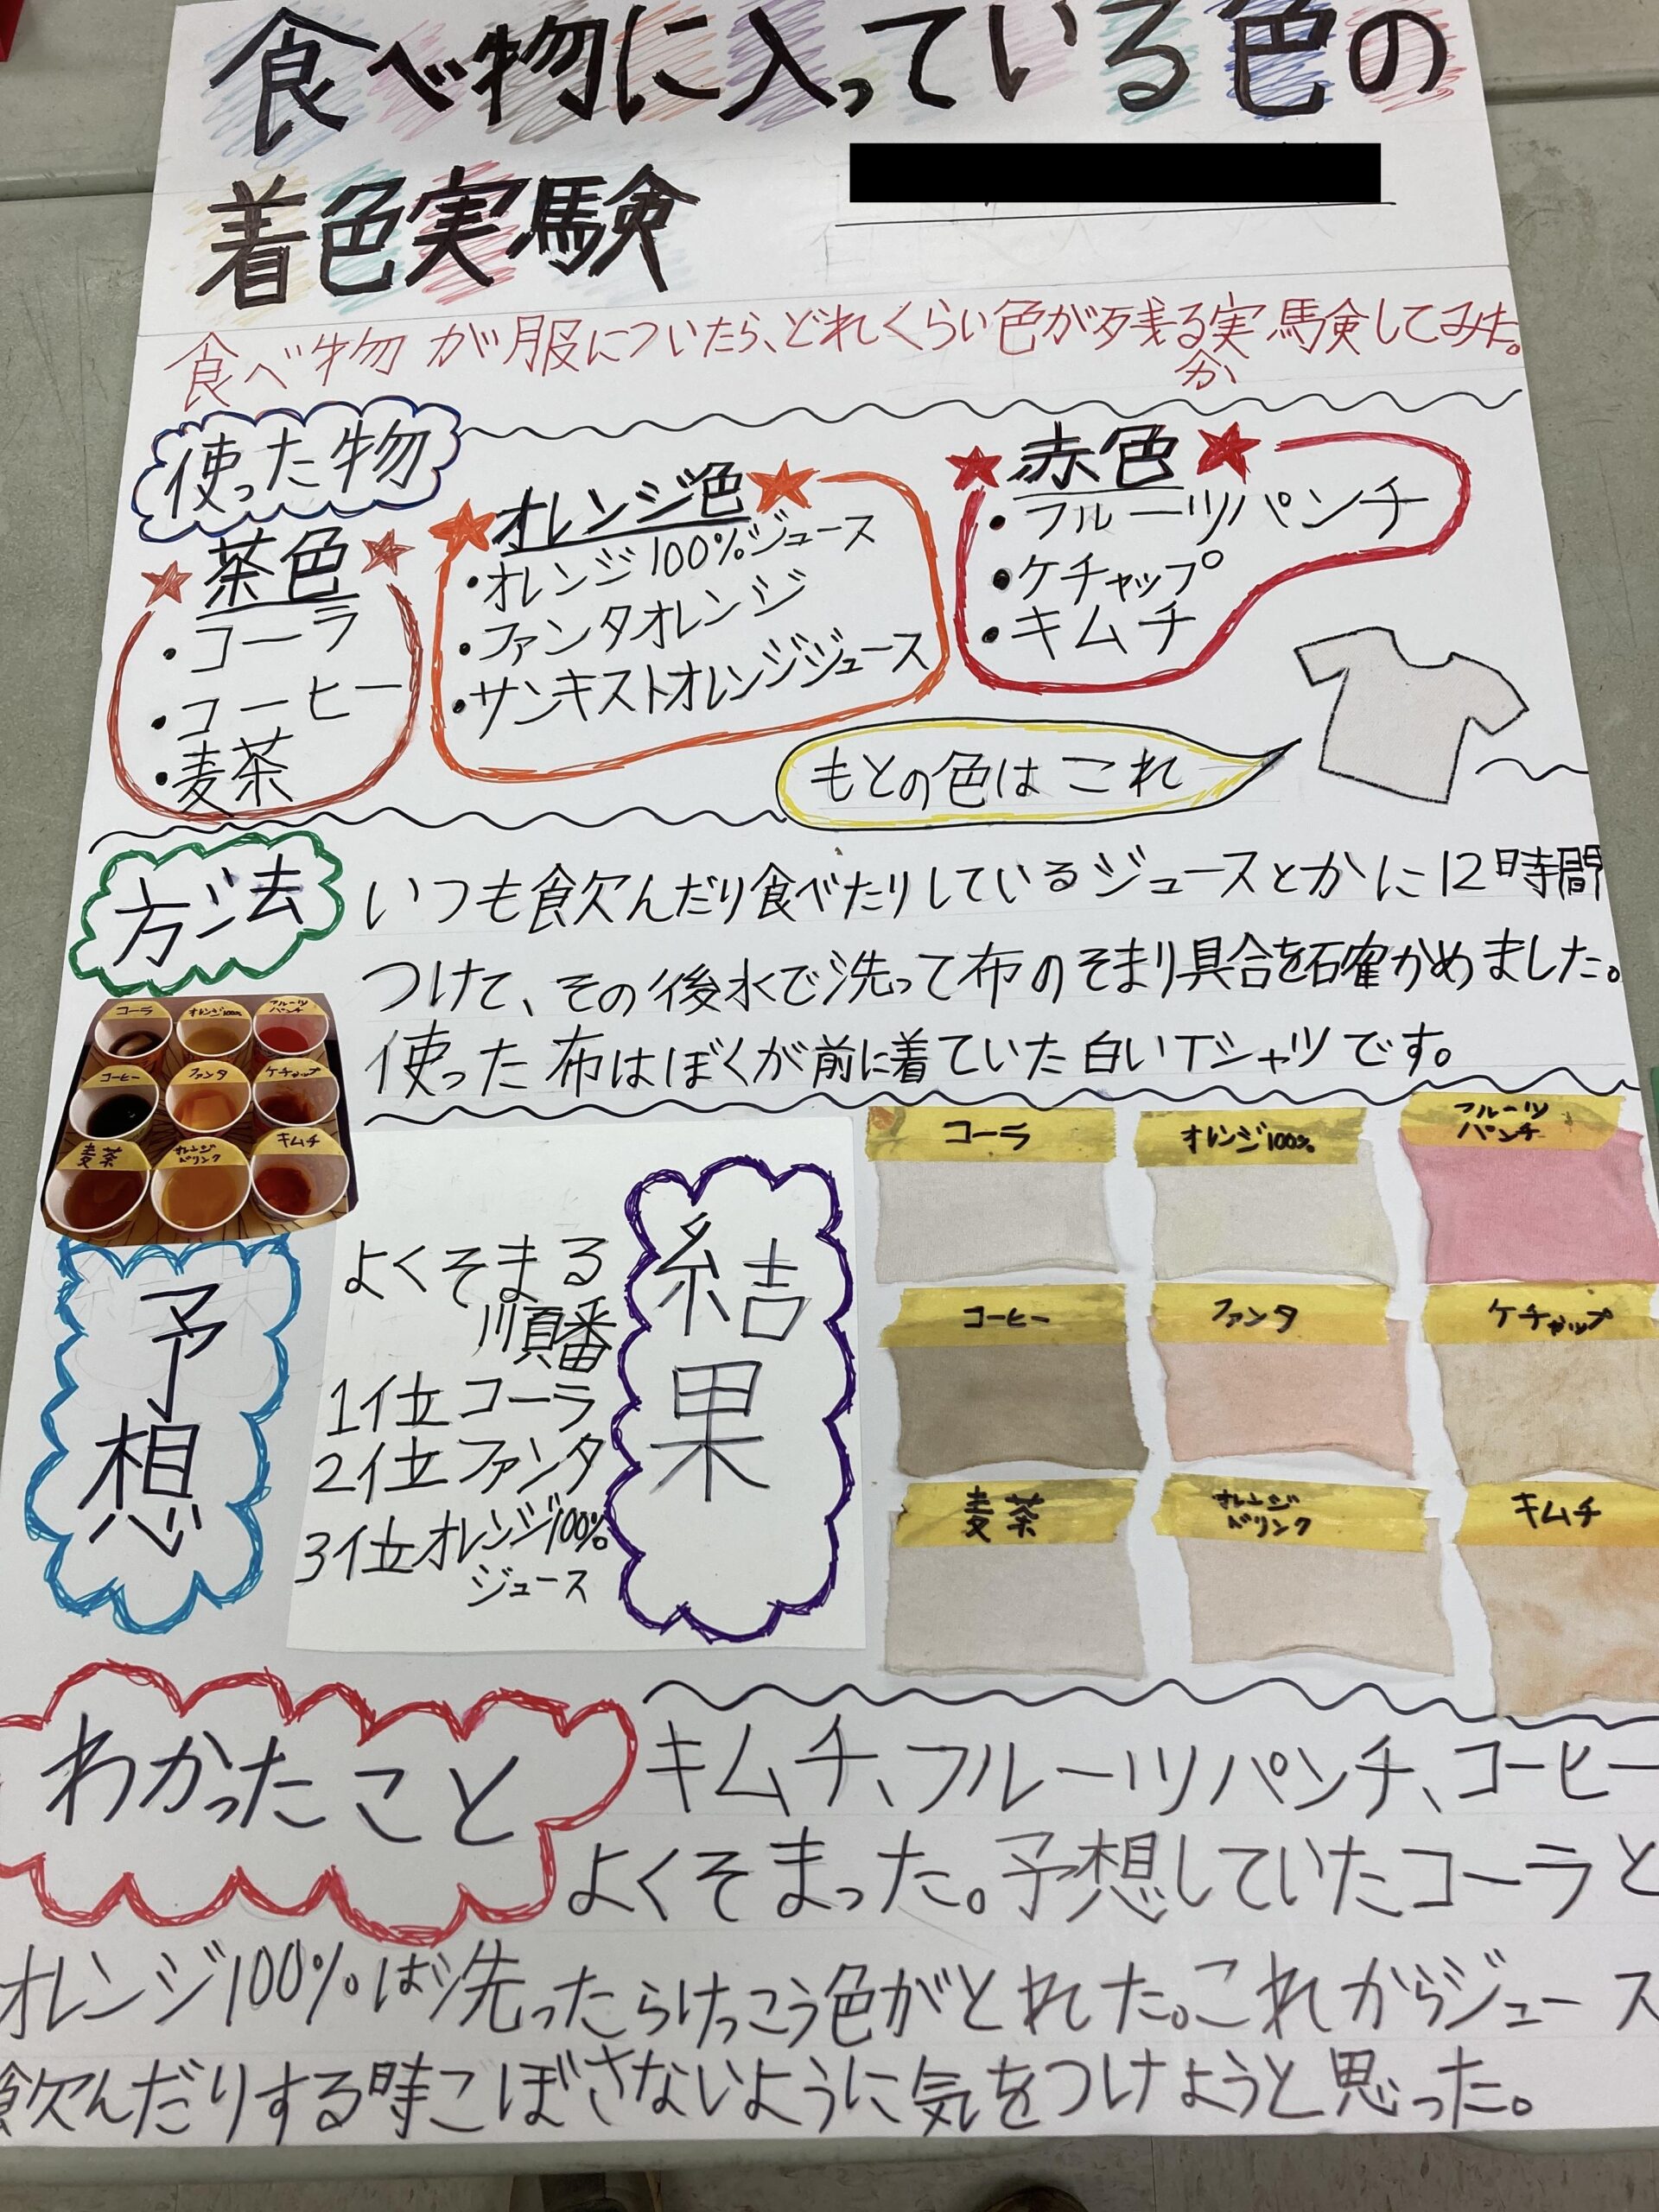 食べ物に入っている色の
着色実験
食べ物が服についたら、どれくらい色が残る実験してみた。
か
使った物
茶色
・コーラ
・コーヒー
・麦茶
オレンジ色
・オレンジ100%ジュース
・ファンタオレンジ
・サンキストオレンジジュース
赤色
・フルーツパンチ
・ケチャップ
・キムチ
もとの色はこれ
方法
いつも飲んだり食べたりしているジュースとかに12時間
つけて、その後水で洗って布のそまり具合を確かめました。
使った布はぼくが前に着ていた白いTシャツです。
コーラ
オレンジ100%
フルーツ
パンチ
コーヒー
ファンタ
ケチャップ
麦茶
オレンジ
ドリンク
キムチ
予想
よくそまる
順番
1位コーラ
2位ファンタ
3位オレンジ100%
ジュース
結果
コーラ
オレンジ100%
フルーツ
パンチ
コーヒー
ファンタ
ケチャップ
麦茶
オレンジ
ドリンク
キムチ
わかったこと
キムチ、フルーツパンチ、コーヒー
よくそまった。予想していたコーラと
オレンジ100%は洗ったらけっこう色がとれた。これからジュース
飲んだりする時こぼさないように気をつけようと思った。